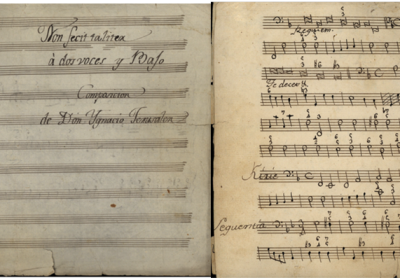 Non fecit taliter
à dos voces y Bajo
Composicion
de Don Ygnacio Jerusalen
Requiem.
Te decet
Kirie
Seguentia